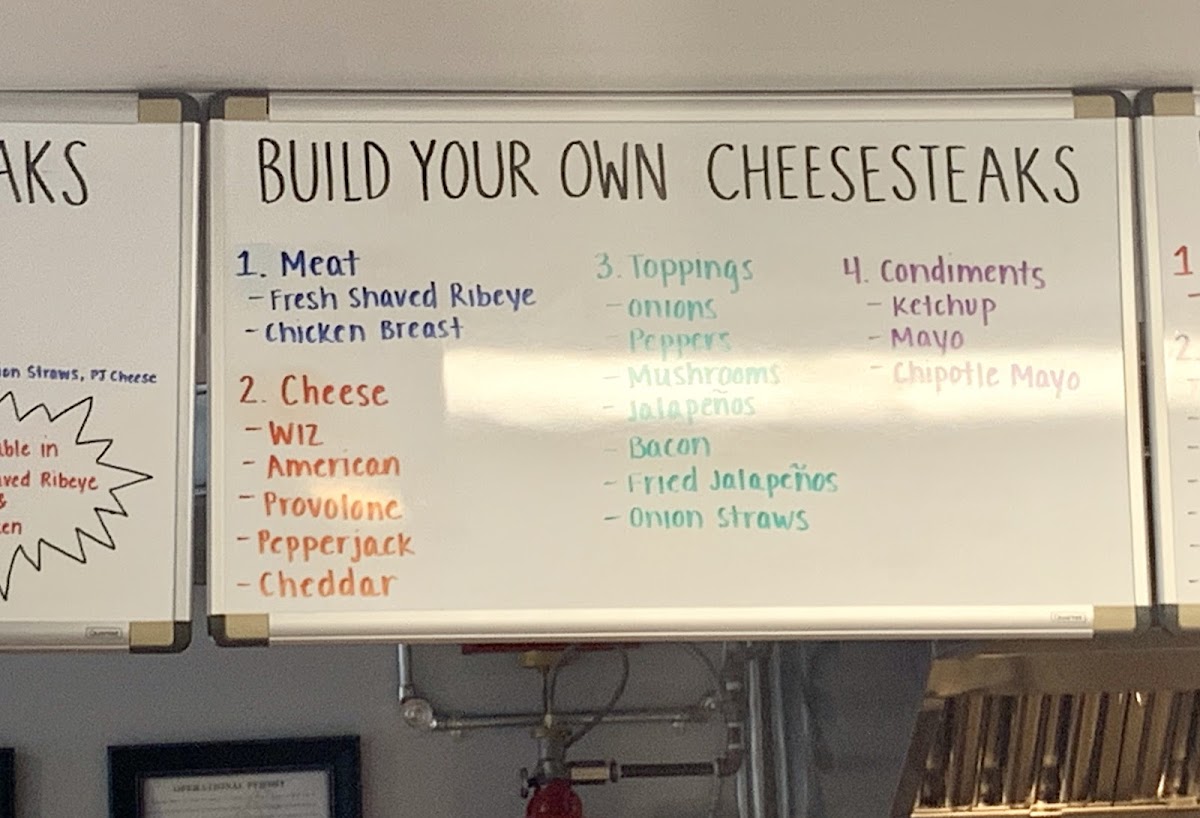 AKS
on Straws, PJ Cheese
ble in
ved Ribeye
&
en
BUILD YOUR OWN CHEESESTEAKS
1. Meat
- Fresh Shaved Ribeye
- Chicken Breast
2. Cheese
- WIZ
- American
- Provolone
- Pepperjack
- Cheddar
3. Toppings
- Onions
- Peppers
- Mushrooms
- Jalapeños
- Bacon
- Fried Jalapeños
- Onion Straws
4. Condiments
- Ketchup
- Mayo
- Chipotle Mayo
1
2
OPERATIONAL PERMIT